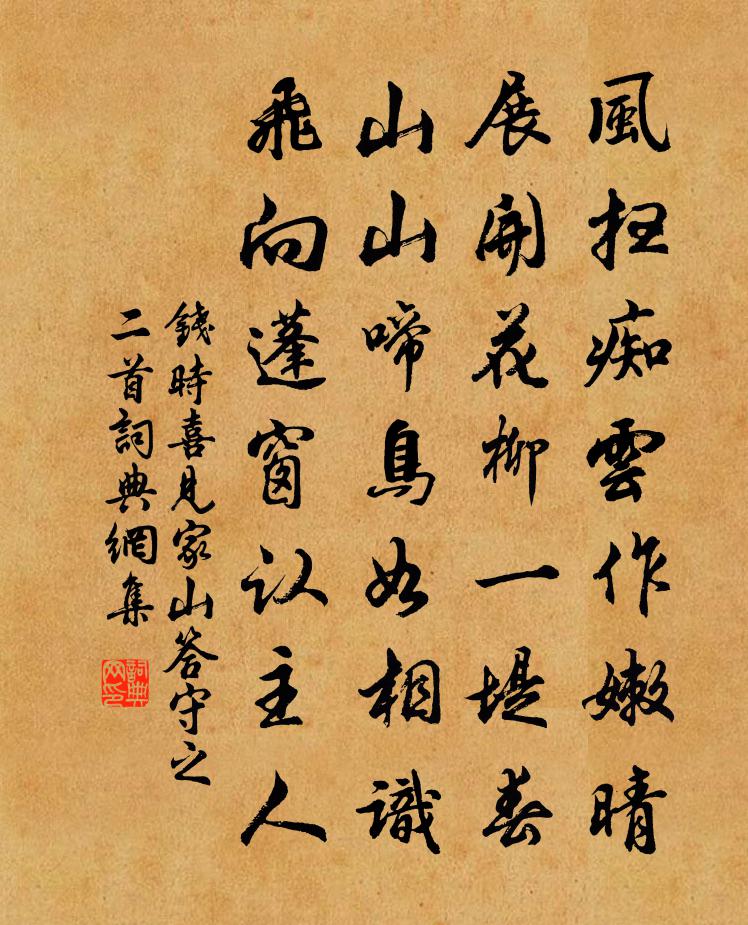 風掃痴雲作嫩晴
展開花柳一堤春
山山啼鳥如相識
飛向蓬窗認主人
錢時喜見家山答守之
二首詞典網集
詞典
网印